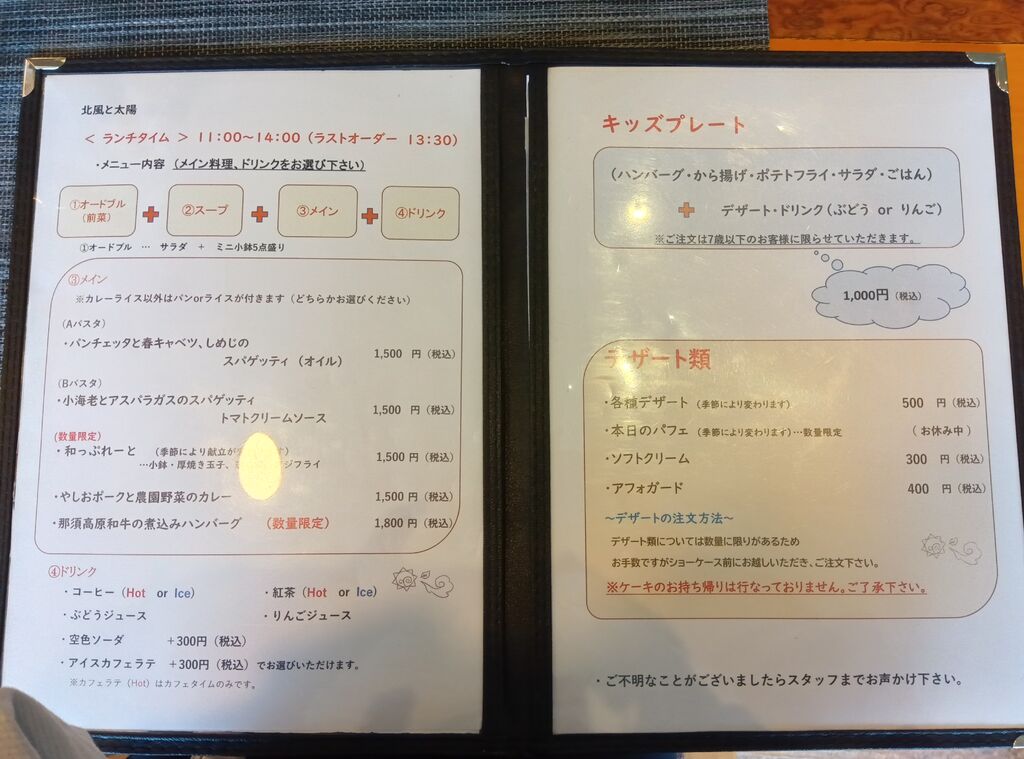 北風と太陽
< ランチタイム > 11:00～14:00 (ラストオーダー 13:30)
・メニュー内容 (メイン料理、ドリンクをお選び下さい)
①オードブル
(前菜)
+
②スープ
+
③メイン
+
④ドリンク
①オードブル … サラダ + ミニ小鉢5点盛り
③メイン
※カレーライス以外はパンorライスが付きます (どちらかお選びください)
(Aパスタ)
・パンチェッタと春キャベツ、しめじの
スパゲッティ (オイル) 1,500 円 (税込)
(Bパスタ)
・小海老とアスパラガスのスパゲッティ
トマトクリームソース 1,500 円 (税込)
(数量限定)
・和っぷれーと (季節により献立が す) 1,500 円 (税込)
…小鉢・厚焼き玉子、 ジフライ
・やしおポークと農園野菜のカレー 1,500 円 (税込)
・那須高原和牛の煮込みハンバーグ (数量限定) 1,800 円 (税込)
④ドリンク
・コーヒー (Hot or Ice) ・紅茶 (Hot or Ice)
・ぶどうジュース ・りんごジュース
・空色ソーダ +300円 (税込)
・アイスカフェラテ +300円 (税込) でお選びいただけます。
※カフェラテ (Hot) はカフェタイムのみです。
キッズプレート
(ハンバーグ・から揚げ・ポテトフライ・サラダ・ごはん)
+ デザート・ドリンク (ぶどう or りんご)
※ご注文は7歳以下のお客様に限らせていただきます。
1,000円 (税込)
デザート類
・各種デザート (季節により変わります) 500 円 (税込)
・本日のパフェ (季節により変わります) …数量限定 (お休み中)
・ソフトクリーム 300 円 (税込)
・アフォガード 400 円 (税込)
～デザートの注文方法～
デザート類については数量に限りがあるため
お手数ですがショーケース前にお越しいただき、ご注文下さい。
※ケーキのお持ち帰りは行なっておりません。ご了承下さい。
・ご不明なことがございましたらスタッフまでお声かけ下さい。